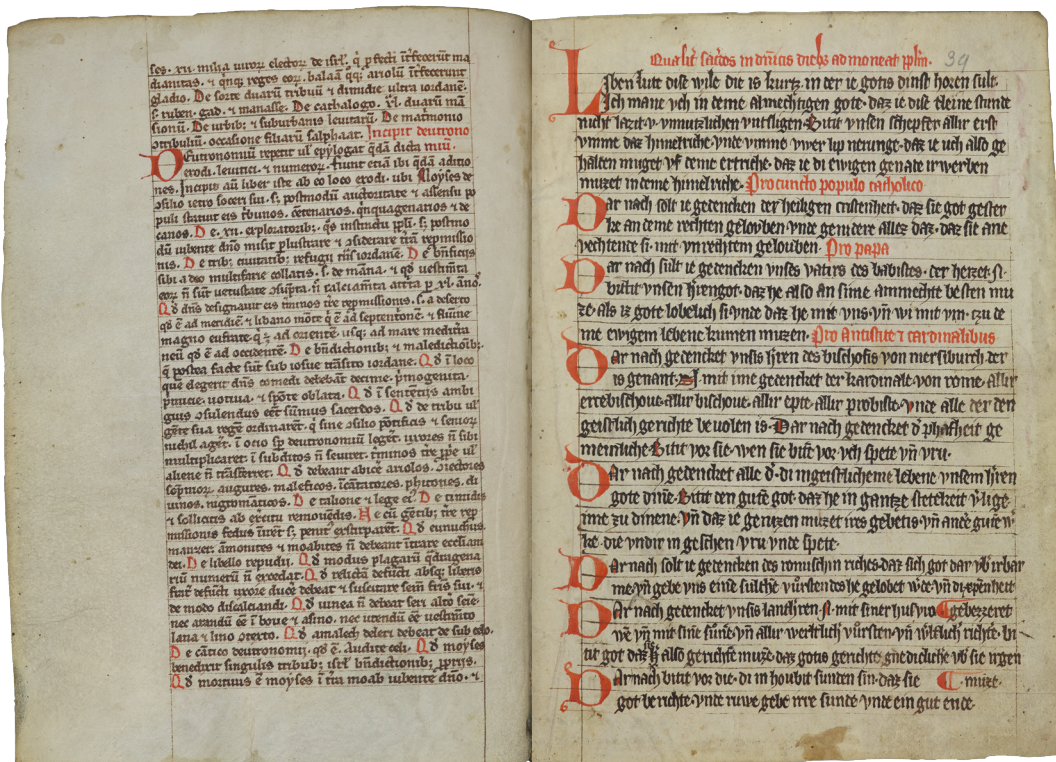 ses. xii. milia uiror elector de isrł. q̇ ꝓfecti īt̄fecerūt ma
dianitas. ⁊ qinq; reges eor. balaā q̇q; ariolū īt̄fecerunt
gladio. De sorte duarū tribuū ⁊ dimidie ultra iordanē.
s. ruben. gad. ⁊ manasse. De cathalogo. xl. duarū mā
sionū. De urbib; ⁊ suburbanis leuitarū. De matrimonio
ɔtribuliū. occasione filiarū salphaat. Incipit deutrono
DEutronomiū repetit ul' epylogat q̇dā dicta miū.
erodi. leuitici. ⁊ numeror. fiunt etiā ibi q̇dā additio
nes. Incipit aū liber iste ab eo loco exodi. ubi Moyses de
ɔsilio ietro soceri sui. s; postmodū auctoritate ⁊ assensu po
puli statuit eis t̄bunos. cētenarios. qinquagenarios ⁊ de
canos. De. xii. exploratorib;. qs instinctu ppłi. s; postmo
dū iubente dn̄o misit plustrare ⁊ ɔsiderare t̄rā repmissio
nis. De trib; ciuitatib; refugii trās iordanē. De bn̄ficiis
sibi a deo multifarie collatis. s. de māna. ⁊ qď uestimta
eor n̄ sūt uetustate ɔsūpta. n̄ calciam̄ta attrita p xl. ano.
Qď dn̄s designauit eis t̄minos t̄re repmissionis. s. a deserto
qď ē ad meridiē. ⁊ libano mōte q̇ ē ad septentrōnē. ⁊ flumine
magno eufrate q̇ ē ad orientē. usq; ad mare mediterra
neū qď ē ad occidentē. De bn̄dictionib; ⁊ maledictiōib;.
q̇ postea facte sūt sub iosue trāsito iordane. Qď ī loco
quē elegerit dn̄s comedi debebāt decime. pmogenita
pmicie. uotiua. ⁊ spōte oblata. Qď ī sentētiis ambi
guis ɔsulendus eēt sūmus sacerdos. Qď de tribu ul'
gēte sua regē ordinarēt. q̇ sine ɔsilio pōtificis ⁊ senior
nichil ageret. ī ocio sp deutronomiū legēt. uxores n̄ sibi
multiplicaret. ī subditos n̄ seuiret. t̄minos t̄re ꝓpe ul'
aliene n̄ trāsferret. Qď debeant abice ariolos. ɔiectores
sōpnior. augures. maleficos. īcātatores. phitones. di
uinos. nigromāticos. De talione ⁊ lege ei'. De timidis
⁊ sollicitis ab exercitu remouēdis. Ne cū gentib; t̄re rep
missionis fedus īirēt s; penit' exstirparēt. Qď eunuchus.
manzer. āmonites ⁊ moabites n̄ debeant ītrare ecclīam
dei. De libello repudii. Qď modus plagarū qdragena
riū numerū n̄ excedat. Qď relictā defūcti absq; liberis
frat' defūcti uxorē ducē debeat ⁊ suscitare sem̄ fr̄is sui. ⁊
de modo discalciandi. Qď iumenta n̄ debeat seri alt'o semē.
nec arandū eē ī boue ⁊ asino. nec utendū eē uestim̄to
lana ⁊ lino ɔtexto. Qď amalech deleri debeat de sub celo.
De cātico deutronomii. qď ē. Audite celi. Qď moyses
benedixit singulis tribub; isrł bn̄dictionib; ꝓpriis.
Qď mortuus ē moyses ī t̄ra moab iubente dn̄o. ⁊
Qualit' sac̄des in dn̄icis dieb; ad moneat pplm. 39
LIben lute dise wile die is kurtz. in der ie gotis dinst horen sult.
Ich mane vch in deme Almechtigen gote. daz ie dise cleine stunde
nicht lazit v. vnnutzlichen vntsligen. Bitit vnsen schepfer allir erst
vmme daz himelriche. vnde vmme vwer lip nerunge. daz ie uch also ge
halten muget vf deme ertriche. daz ie di ewigen genate irwerben
muzet in deme himelriche. Pro cuncto populo catholico
Dar nach solt ie gedencken der heiligen cristenheit. daz sie got gester
ke an deme rechten gelouben. vnde genidere allez daz. daz sie ane
vechtende si. mit vnrechtem gelouben. Pro papa
Dar nach sult ie gedencken vnses vatirs des babistes. der heizet. N.
bittit vnsen hrengot. daz he also an sime ammechte besten mu
ze. als iz gote lobelich si vnde daz he mit vns. vn̄ wi mit ym. tzu de
me ewigem lebene kumen muzen. Pro Antistite ⁊ cardinalibus
Dar nach gedencket vnsis h̄ren des bischofis von mersiburch der
is genant. N. mit ime gedencket der kardinale. von rome. allir
ertzebischoue. allir bischoue. allir epte. allir probiste. vnde alle der den
geistlich gerichte beuolen is. Dar nach gedencket d' phafheit ge
meinliche. Bitit vor sie. wen sie bitt' vor vch spete vn̄ vru.
Dar nach gedencket alle d'. di in geistlicheme lebene vnsem h̄ren
gote dine. Bitit den gutē got. daz he in gantze stetekeit v'lige.
ime zu dinene. vn̄ daz ie genizen muzet ires gebetis. vn̄ ander gute w'
ke. die vndir in geschen vru vnde spete.
Dar nach solt ie gedencken des romischin riches. daz sich got dar vb' irbar
me. vn̄ gebe vns eine sulche vursten des he gelobet w'de. vn̄ di cristenheit
Dar nach gedencket vnsis lanth̄ren. N. mit siner husvro ¶ gebezzeret
w'de vn̄ mit sine sune. vn̄ allir wertlich vursten. vn̄ w'tlich richte. bi
tit got daz sie also gerichte muze. daz gotis gerichte gnedicliche vb' sie irgen
Dar nach bitit vor die. di in houbit sunden sin. daz sie ¶ muze.
got berichte. vnde ruwe gebe irre sunde vnde ein gut ende.